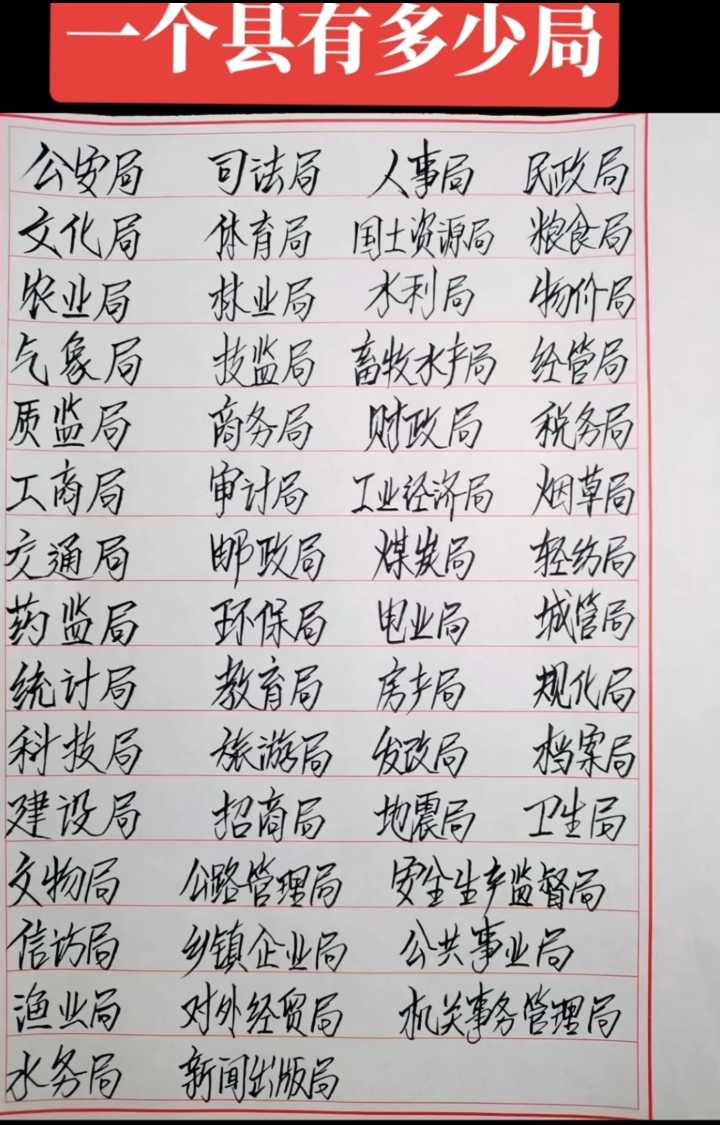 一个县有多少局
公安局 司法局 人事局 民政局
文化局 体育局 国土资源局 粮食局
农业局 林业局 水利局 物价局
气象局 技监局 畜牧水产局 经管局
质监局 商务局 财政局 税务局
工商局 审计局 工业经济局 烟草局
交通局 邮政局 煤炭局 轻纺局
药监局 环保局 电业局 城管局
统计局 教育局 房产局 规化局
科技局 旅游局 发改局 档案局
建设局 招商局 地震局 卫生局
文物局 公路管理局 安全生产监督局
信访局 乡镇企业局 公共事业局
渔业局 对外经贸局 机关事务管理局
水务局 新闻出版局